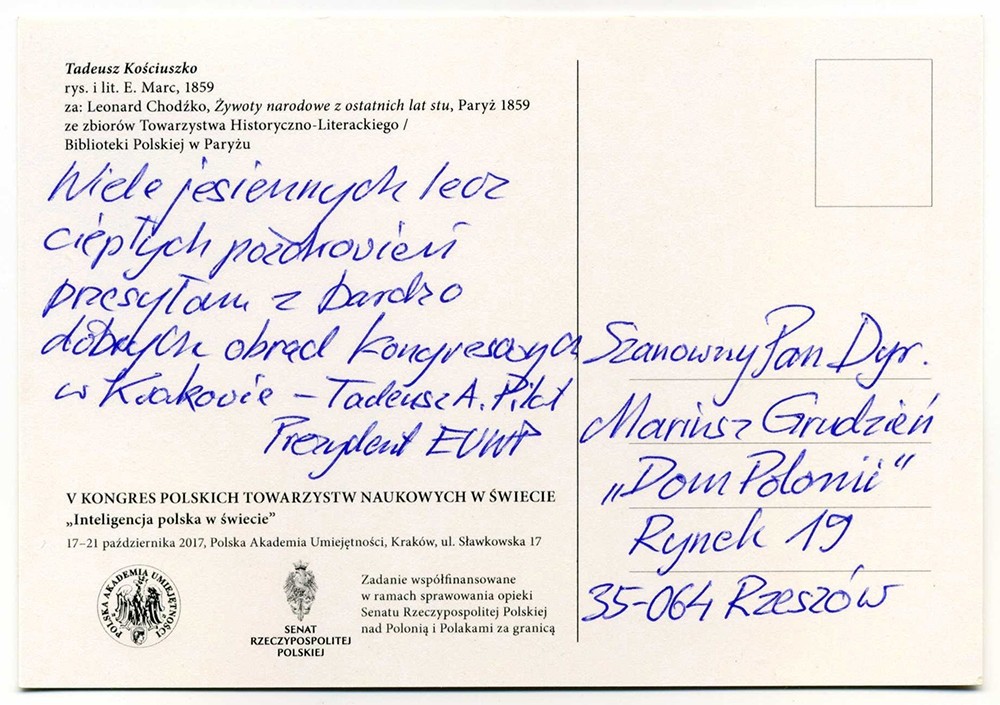 Tadeusz Kościuszko
rys. i lit. E. Marc, 1859
za: Leonard Chodźko, Żywoty narodowe z ostatnich lat stu, Paryż 1859
ze zbiorów Towarzystwa Historyczno-Literackiego /
Biblioteki Polskiej w Paryżu
Wiele jesiennych lecz
ciepłych pozdrowień
przesyłam z bardzo
dobrych obrad kongresowych
w Krakowie – Tadeusz A. Pilat
Prezydent EUWP
V KONGRES POLSKICH TOWARZYSTW NAUKOWYCH W ŚWIECIE
„Inteligencja polska w świecie”
17–21 października 2017, Polska Akademia Umiejętności, Kraków, ul. Sławkowska 17
POLSKA AKADEMIA UMIEJĘTNOŚCI
SENAT
RZECZYPOSPOLITEJ
POLSKIEJ
Zadanie współfinansowane
w ramach sprawowania opieki
Senatu Rzeczypospolitej Polskiej
nad Polonią i Polakami za granicą
Szanowny Pan Dyr.
Mariusz Grudzień
„Dom Polonii”
Rynek 19
35-064 Rzeszów